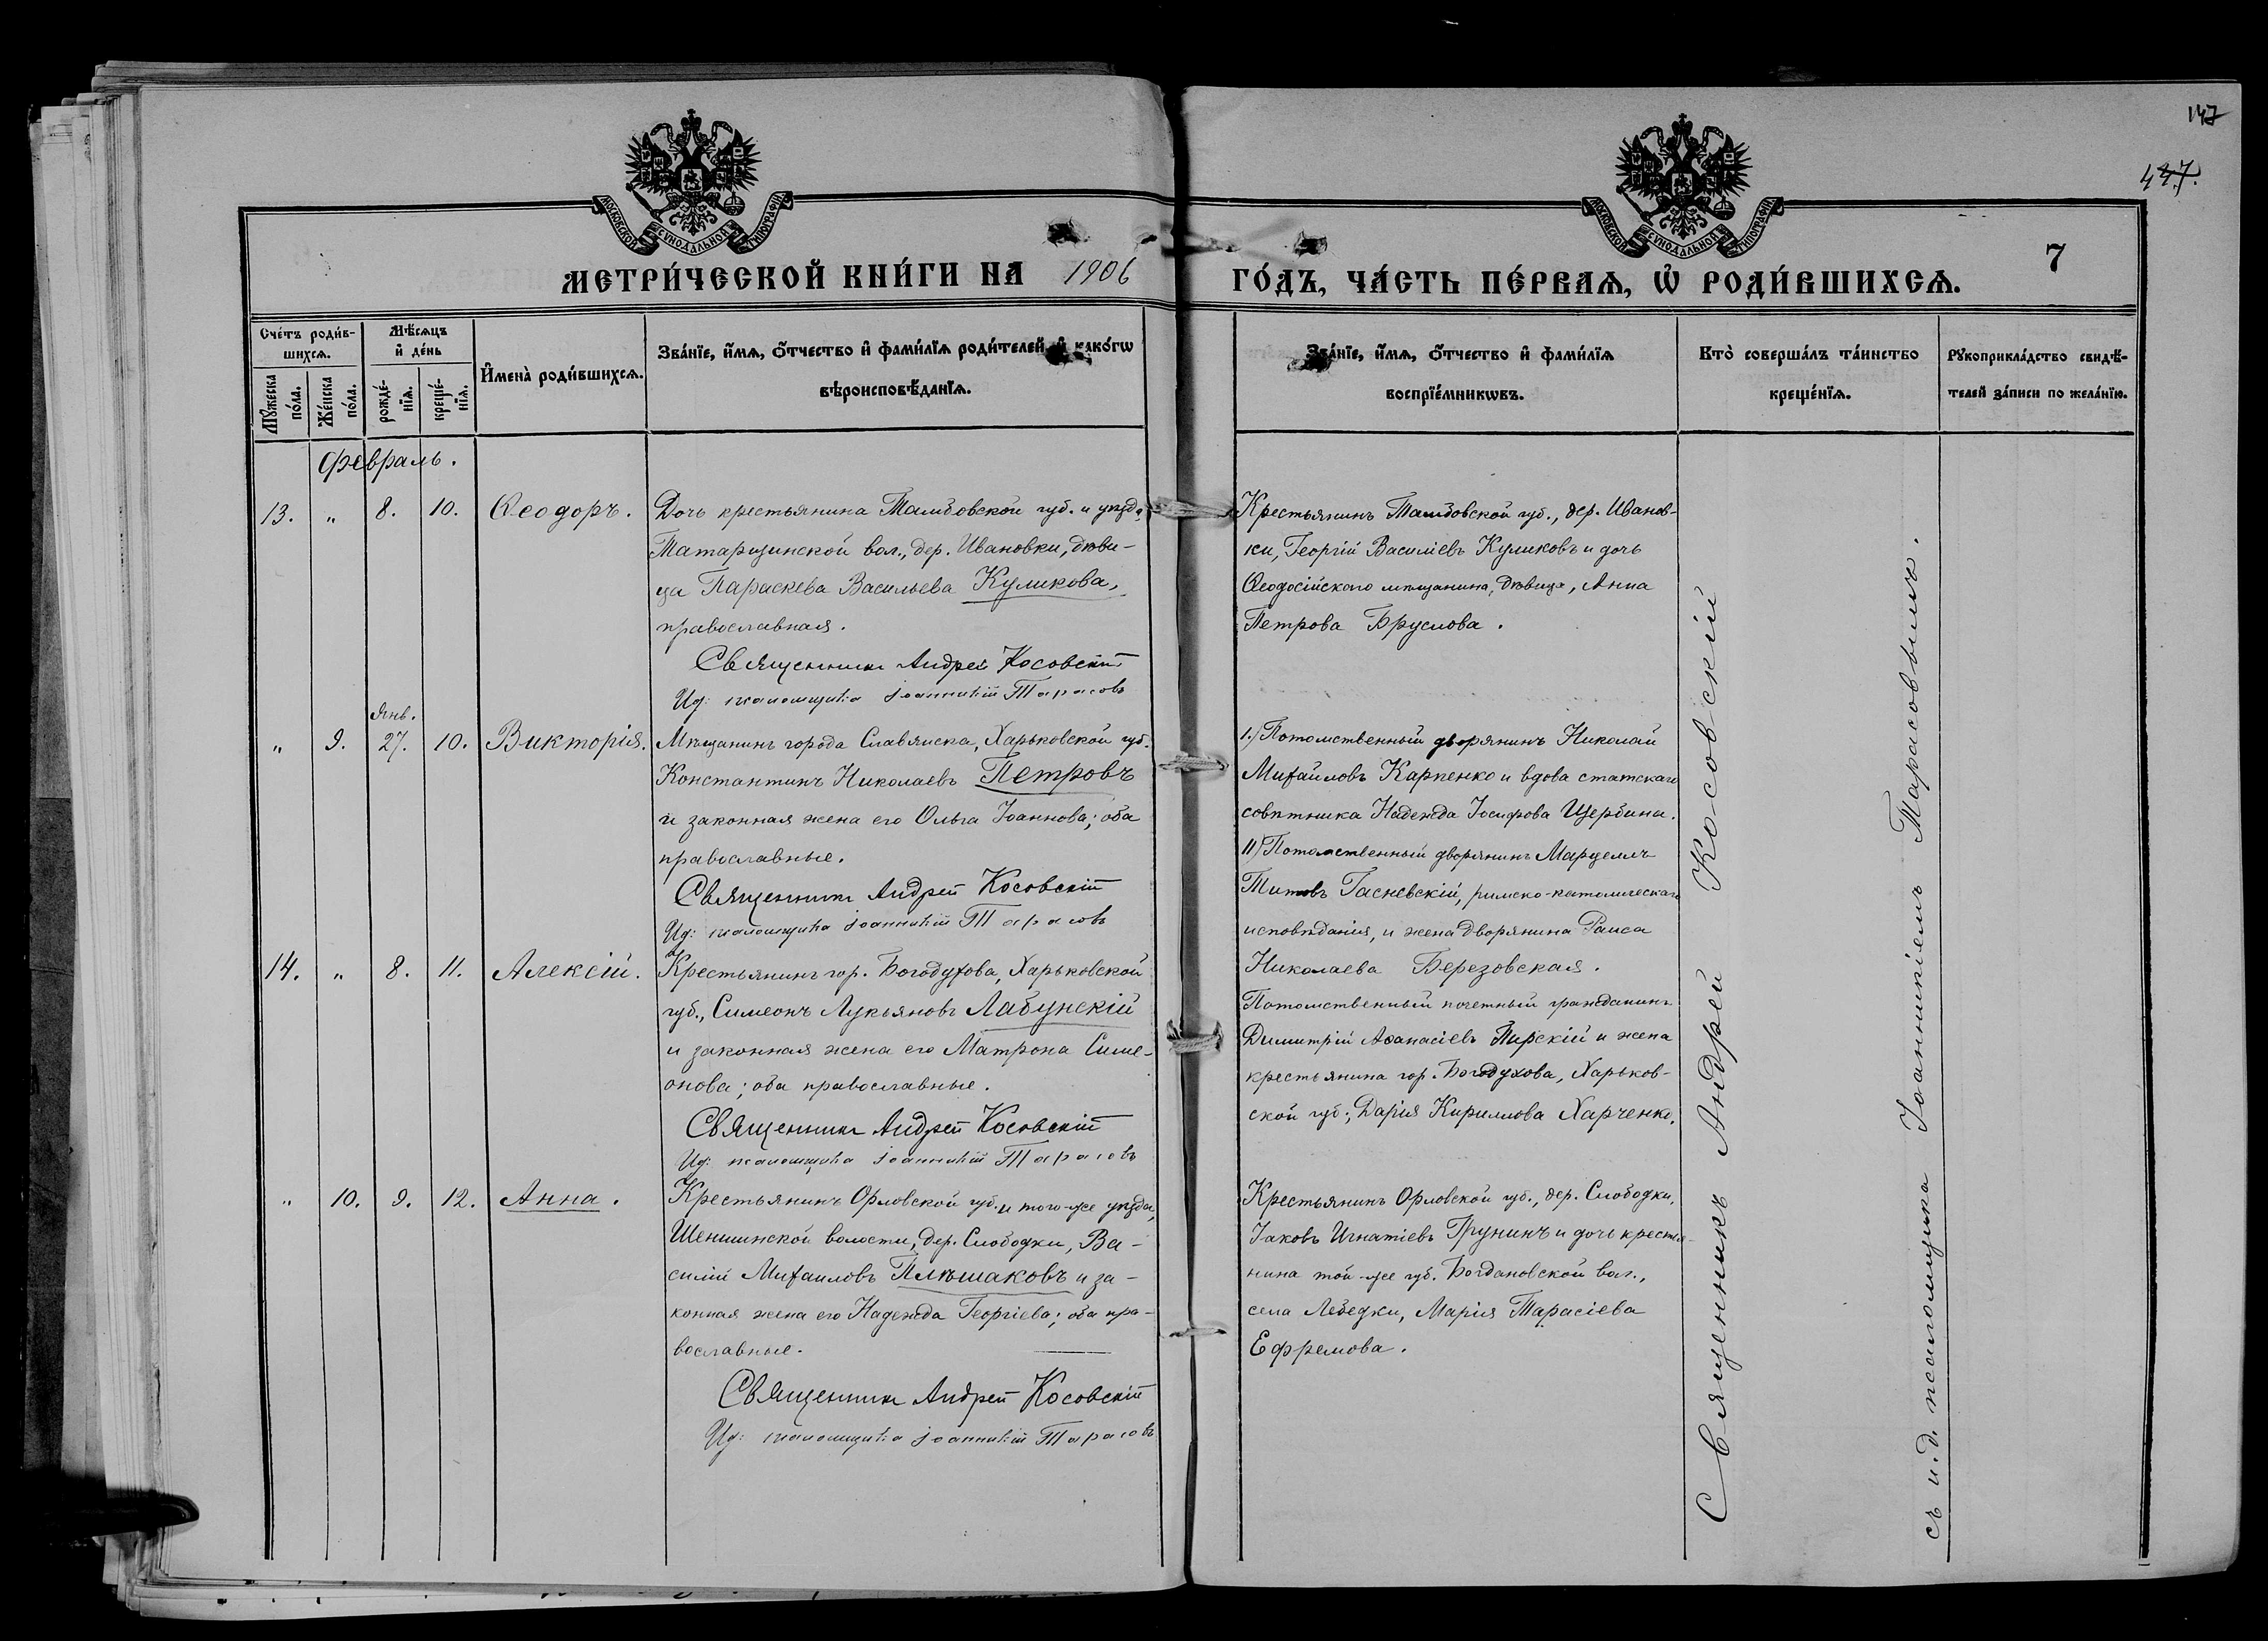 147
447.
МОСКОВСКОЙ СУНОДАЛЬНОЙ ТИПОГРАФІИ
МОСКОВСКОЙ СУНОДАЛЬНОЙ ТИПОГРАФІИ
7
МЕТРИ́ЧЕСКОЙ КНИ́ГИ НА 1906 ГО́ДЪ, ЧА́СТЬ ПЕ́РВАѦ, Ѡ҆ РОДИ́ВШИХСѦ.
Сче́тъ роди́в-
шихсѧ.
Мꙋжеска
по́ла.
Же́нска
по́ла.
Мѣ́сѧцъ
и҆ де́нь
рожде́-
нїѧ.
креще́-
нїѧ.
И҆мена̀ роди́вшихсѧ.
Зва́нїе, и҆́мѧ, ѻ҆́тчество и҆ фами́лїѧ роди́телей и҆ како́гѡ
вѣроисповѣ́данїѧ.
Зва́нїе, и҆́мѧ, ѻ҆́тчество и҆ фами́лїѧ
воспрїе́мникѡвъ.
Кто̀ соверша́лъ та́инство
креще́нїѧ.
Рꙋкоприкла́дство свидѣ́-
телей за́писи по жела́нїю.
Февраль.
13. „ 8. 10. Ѳеодоръ.
Дочь крестьянина Тамбовской губ. и уѣзда,
Татарщинской вол., дер. Ивановки, дѣви-
ца Параскева Васильева Куликова,
православная.
Священникъ Андрей Косовскій
Ид: псаломщика Іоанникій Тарасовъ
Крестьянинъ Тамбовской губ., дер. Иванов-
ки, Георгій Василіевъ Куликовъ и дочь
Ѳеодосійскаго мѣщанина, дѣвица, Анна
Петрова Бруслова.
Янв.
„ 9. 27. 10. Викторія.
Мѣщанинъ города Славянска, Харьковской губ.
Константинъ Николаевъ Петровъ
и законная жена его Ольга Іоаннова; оба
православные.
Священникъ Андрей Косовскій
Ид: псаломщика Іоанникій Тарасовъ
1.) Потомственный дворянинъ Николай
Михаиловъ Карпенко и вдова статскаго
совѣтника Надежда Іосифова Щербина.
11) Потомственный дворянинъ Марцеллъ
Титовъ Гасневскій, римско-католическаго
исповѣданія, и жена дворянина Раиса
Николаева Березовская.
14. „ 8. 11. Алексій.
Крестьянинъ гор. Богодухова, Харьковской
губ., Симеонъ Лукьяновъ Лабунскій
и законная жена его Матрона Симе-
онова; оба православные.
Священникъ Андрей Косовскій
Ид: псаломщика Іоанникій Тарасовъ
Потомственный почетный гражданинъ
Димитрій Аѳанасіевъ Пирскій и жена
крестьянина гор. Богодухова, Харьков-
ской губ; Дарія Кириллова Харченко.
„ 10. 9. 12. Анна.
Крестьянинъ Орловской губ. и того-же уѣзда,
Шеншинской волости, дер. Слободки, Ва-
силій Михаиловъ Плѣшаковъ и за-
конная жена его Надежда Георгіева; оба пра-
вославные.
Священникъ Андрей Косовскій
Ид: псаломщика Іоанникій Тарасовъ
Крестьянинъ Орловской губ., дер. Слободки,
Іаковъ Игнатіевъ Грунинъ и дочь крестья-
нина той-же губ. Богдановской вол.,
села Лебедки, Марія Тарасіева
Ефремова.
Священникъ Андрей Косовскій
съ и.д. псаломщика Іоанникіемъ Тарасовымъ.